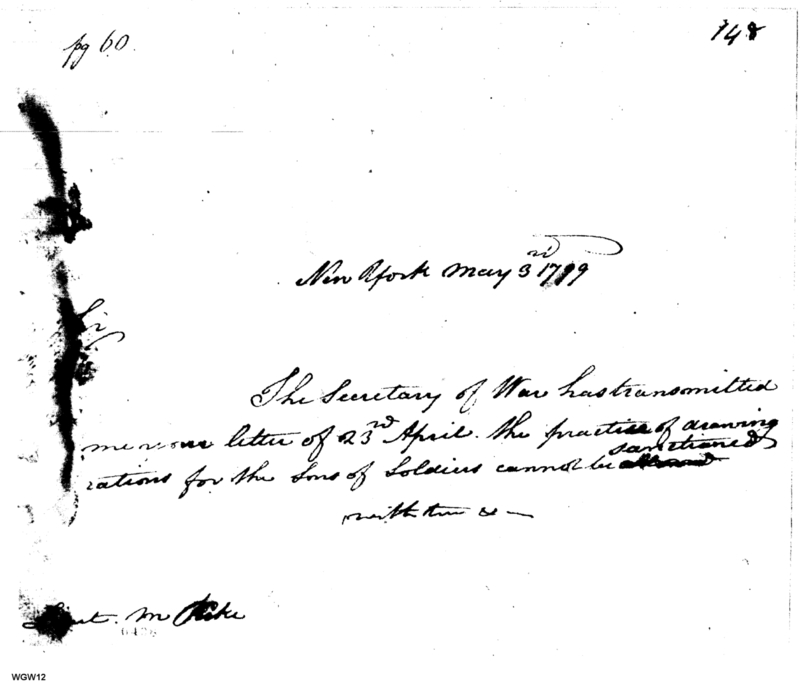 pg 60.
748
New York May 3rd 1799
Sir
The Secretary of War has transmitted
me your letter of 23rd April. The practice of drawing
sanctioned
rations for the Sons of Soldiers cannot be
with true & —
Lieut. M Pike
WGW12